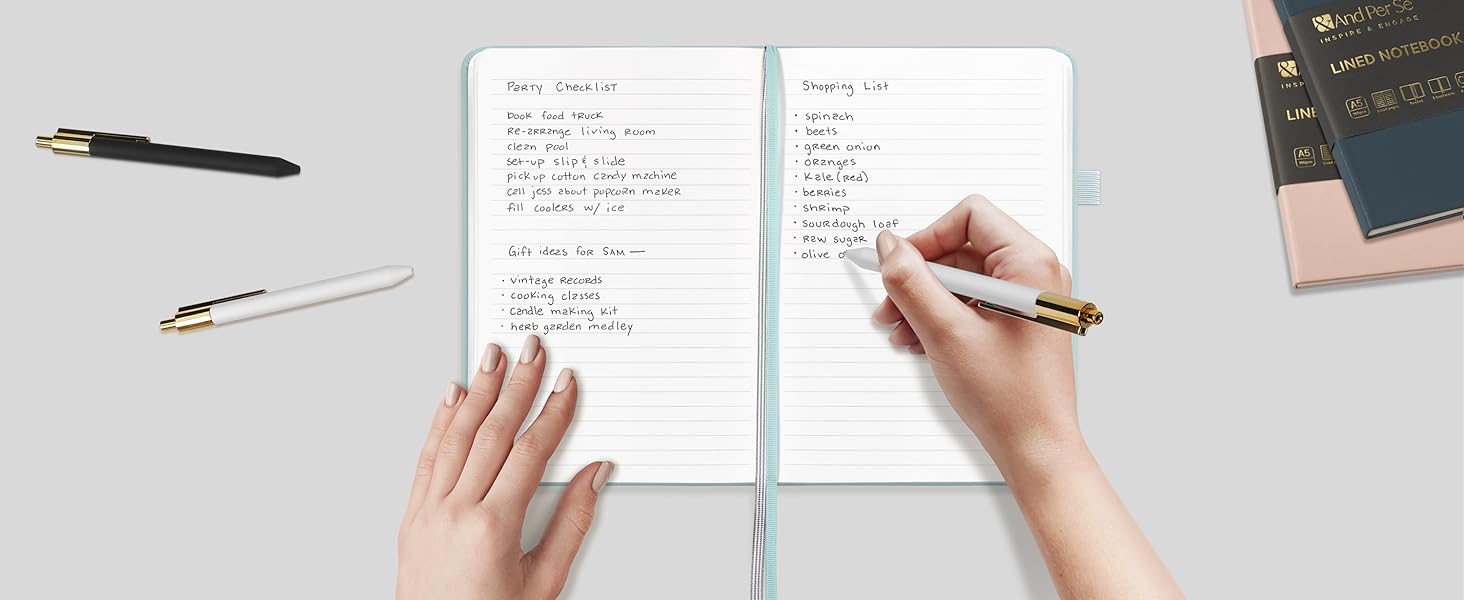 Party Checklist
book food truck
Re-arrange living room
clean pool
set-up slip & slide
pick up cotton candy machine
call jess about popcorn maker
fill coolers w/ ice
Gift ideas for Sam —
· vintage Records
· cooking classes
· candle making kit
· herb garden medley
Shopping List
· spinach
· beets
· green onion
· oranges
· Kale (red)
· berries
· shrimp
· sourdough loaf
· raw sugar
· olive o
& And Per Se
INSPIRE & ENGAGE
LINED NOTEBOOK
A5
&
INS
LINE
A5